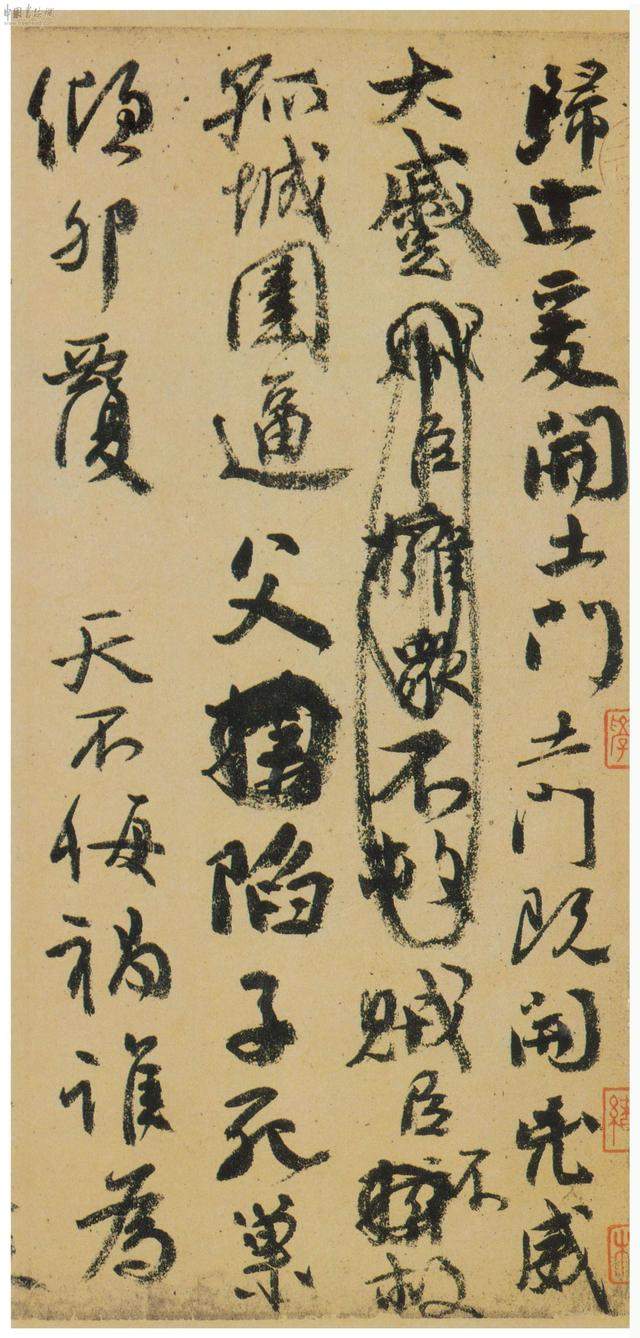 歸止爰開土門土門既開兇威
大蹙賊臣擁眾不救賊臣擁不救
孤城圍逼父擒陷子死巢
傾卵覆 天不悔禍誰為